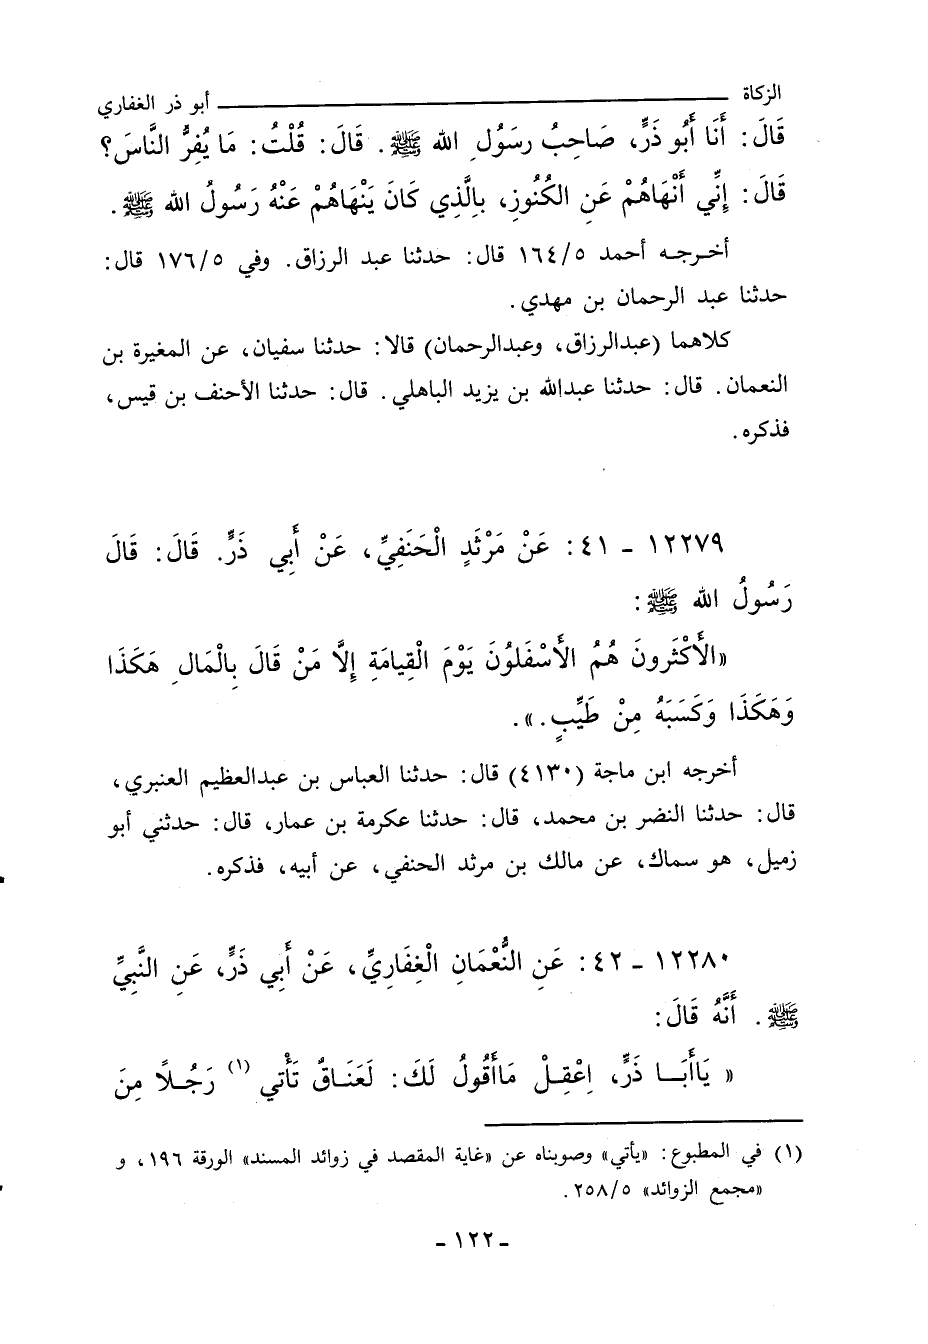 الزكاة ــــــــــ أبو ذر الغفاري
قَالَ: أَنَا أَبُو ذَرٍّ، صَاحِبُ رَسُولِ الله ﷺ. قَالَ: قُلْتُ: مَا يُفِرُّ النَّاسَ؟
قَالَ: إِنِّي أَنْهَاهُمْ عَنِ الكُنُوزِ، بِالَّذِي كَانَ يَنْهَاهُمْ عَنْهُ رَسُولُ الله ﷺ.
أخرجه أحمد ١٦٤/٥ قال: حدثنا عبد الرزاق. وفي ١٧٦/٥ قال:
حدثنا عبد الرحمان بن مهدي.
كلاهما (عبدالرزاق، وعبدالرحمان) قالا: حدثنا سفيان، عن المغيرة بن
النعمان. قال: حدثنا عبدالله بن يزيد الباهلي. قال: حدثنا الأحنف بن قيس،
فذكره.
١٢٢٧٩ - ٤١: عَنْ مَرْثَدٍ الْحَنَفِيِّ، عَنْ أَبِي ذَرٍّ. قَالَ: قَالَ
رَسُولُ الله ﷺ:
«الأَكْثَرونَ هُمُ الأَسْفَلُونَ يَوْمَ الْقِيامَةِ إِلَّا مَنْ قَالَ بِالْمَالِ هَكَذَا
وَهَكَذَا وَكَسَبَهُ مِنْ طَيِّبٍ.».
أخرجه ابن ماجة (٤١٣٠) قال: حدثنا العباس بن عبدالعظيم العنبري،
قال: حدثنا النضر بن محمد، قال: حدثنا عكرمة بن عمار، قال: حدثني أبو
زميل، هو سماك، عن مالك بن مرثد الحنفي، عن أبيه، فذكره.
١٢٢٨٠ - ٤٢: عَنِ النُّعْمَانِ الْغِفَارِيِّ، عَنْ أَبِي ذَرٍّ، عَنِ النَّبِيِّ
ﷺ. أَنَّهُ قَالَ:
« يَاأَبَا ذَرٍّ، اِعْقِلْ مَاأَقُولُ لَكَ: لَعَنَاقٌ تَأْتي (١) رَجُلاً مِنَ
(١) في المطبوع: «يأتي» وصوبناه عن «غاية المقصد في زوائد المسند» الورقة ١٩٦، و
«مجمع الزوائد» ٢٥٨/٥.
- ١٢٢ -